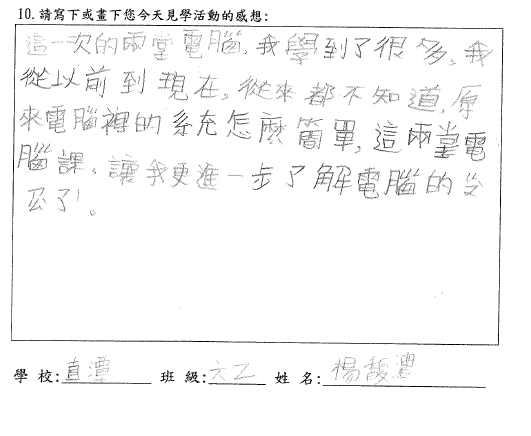 10. 請寫下或畫下您今天見學活動的感想:
這一次的兩堂電腦,我學到了很多。我
從以前到現在,從來都不知道,原
來電腦裡的系充怎麼簡單,這兩堂電
腦課,讓我更進一步了解電腦的
了。
學 校:直潭 班 級:六乙 姓 名:楊馥